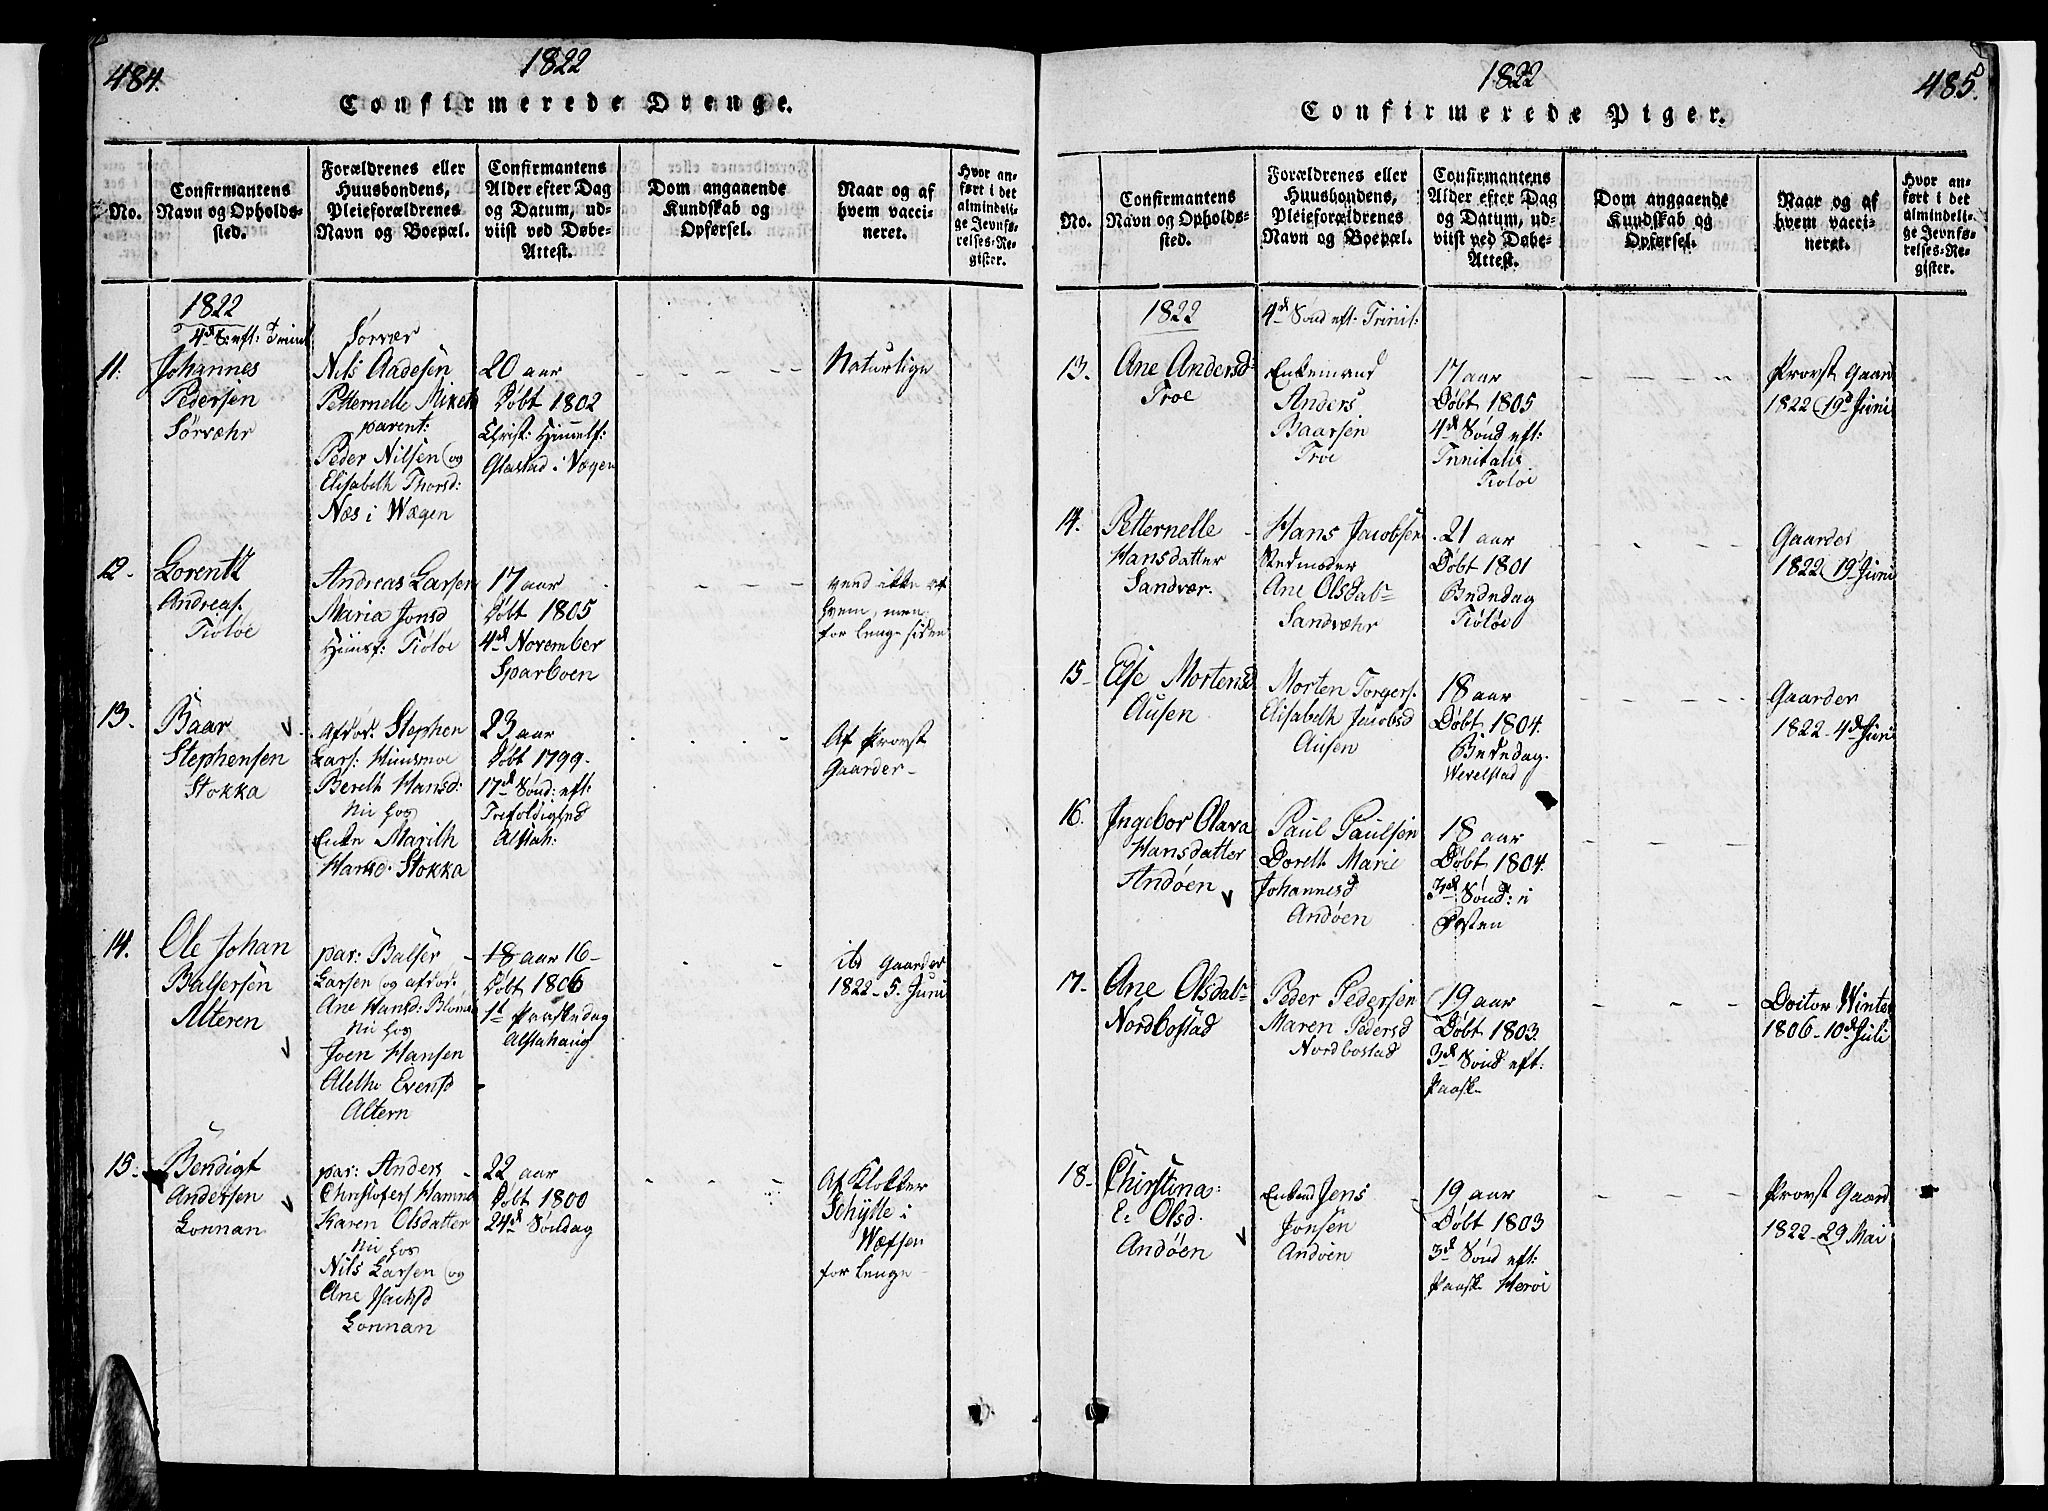 484.
1822
Confirmerede Drenge.
No.
Confirmantens
Navn og Opholds-
sted.
Forældrenes eller
Huusbondens,
Pleieforældrenes
Navn og Boepæl.
Confirmantens
Alder efter Dag
og Datum, ud-
viist ved Døbe-
Attest.
Dom angaaende
Kundskab og
Opførsel.
Naar og af
hvem vacci-
neret.
Hvor an-
ført i det
almindeli-
ge Jevnfø-
relses-Re-
gister.
1822
4de S: eft: Trinit:
11.
Johannes
Pedersen
Sörvæhr
Sörvær
Nils Aadesen
Petternelle Mikels
parent:
Peder Nilsen og
Elisabeth Thorsd:
Næs i Wægen
20 aar
Döbt 1802
Christ: Himmelf:
Glastad i Vægen
Naturlige
12.
Lorentz
Andreas.
Tioloe
Andreas Larsen
Maria Jonsd
Huusf: Tioloe
17 aar
Döbt 1805
4de November
Sparboen
veed ikke af
hvem, men
for lenge siden
13.
Baar
Stephensen
Stokka
Afdöd: Stephen
Lars: Huusmoe
Bereth Hansd:
Nu hos
Enke Marith
Hansd: Stokka
23 aar
Döbt 1799.
17de Sönd: eft:
Trefoldighed
Alstah:
Af Provst
Gaarder
14.
Ole Johan
Balsersen
Alteren
par: Balser
Larsen og afdöd:
Ane Hansd:
Nu hos
Joen Hansen
Alethe Evensd
Altern
18 aar 16
Döbt 1806
1st Paaskedag
Alstahaug
ibd Gaarder
1822 5. Juni
15.
Bendigt
Andersen
Lonnan
par: Anders
Christofers Hamnes
Karen Olsdatter
Nu hos
Nils Larsen og
Ane Isachsd
Lonnan
22 aar
Döbt 1800
24de Söndag
Af Klokker
Schytte i
Wæfsen
for lenge
485.
1822
Confirmerede Piger.
No.
Confirmantens
Navn og Opholds-
sted.
Forældrenes eller
Huusbondens,
Pleieforældrenes
Navn og Boepæl.
Confirmantens
Alder efter Dag
og Datum, ud-
viist ved Døbe-
Attest.
Dom angaaende
Kundskab og
Opførsel.
Naar og af
hvem vacci-
neret.
Hvor an-
ført i det
almindeli-
ge Jevnfø-
relses-Re-
gister.
1822
4de Sönd eft: Trinit:
13.
Ane Andersd:
Troe
Enkemand
Anders
Baarsen
Troe
17 aar
Döbt 1805
4de Sönd eft:
Trinitatis
Tioloe
Provst Gaard
1822 19de Juni
14.
Petternelle
Hansdatter
Sandvær.
Hans Jacobsen
Stedmoder
Ane Olsdatr
Sandvæhr
21 aar
Döbt 1801
Bededag
Tioloe
Gaarder
1822 19 Juni
15
Else Mortensd
Ausen
Morten Torgers.
Elisabeth Jacobsd
Ausen
18 aar
Döbt 1804.
Bededag.
Wevelstad
Gaarder
1822 4de Juni
16.
Ingebor Olava
Hansdatter
Andöen
Paul Paulsen
Doreth Marie
Johannesd
Andöen
18 aar
Döbt 1804.
3de Sönd: i
Fasten
17.
Ane Olsdatr
Nordbostad
Peder Pedersen
Maren Pedersd
Nordbostad
19 aar
Döbt 1803.
3de Sönd eft:
Paask
Doctor Winter
1806 10de Juli
18.
Chirstina:
E: Olsd.
Andöen
Enkmd Jens
Jonsen
Andöen
19 aar
Döbt 1803
3de Sönd eft:
Paask Heroe
Provst Gaard
1822 29 Mai